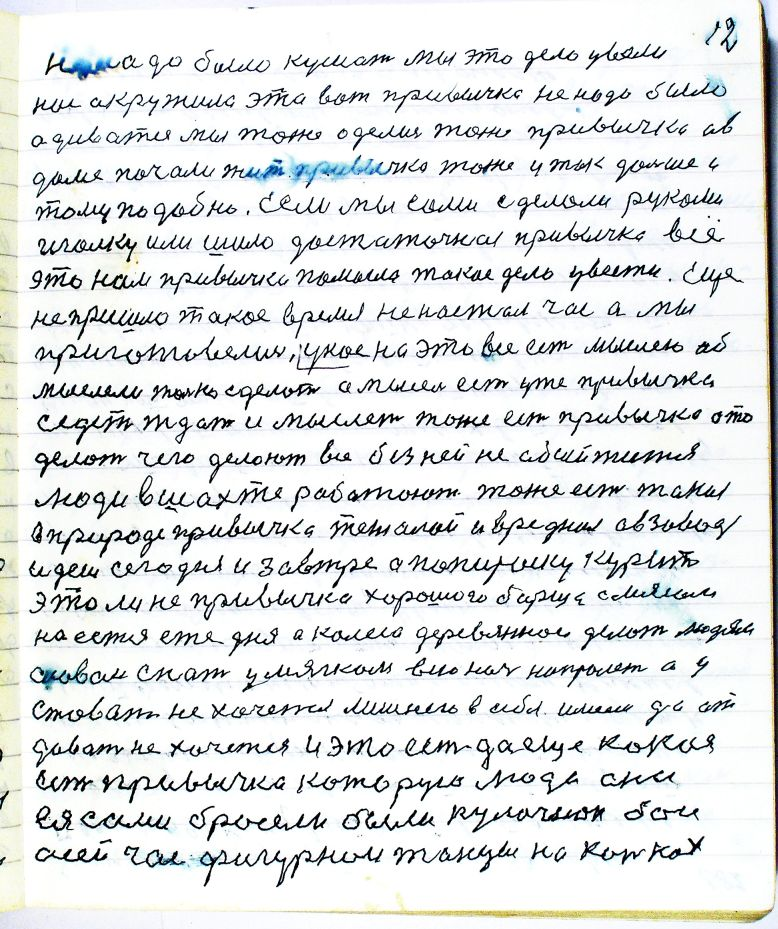 12
надо было кушат мы это дело увели
нас окружила эта вот привычка не надо было
адиватся мы тоже оделис тоже привычка ав
доме начали жит привычка тоже и так дальше и
тому подобно. Если мы сами сделали руками
иголку или шило достаточная привычка всё
это нам привычка помогла такое дело увести. Еще
не пришло такое время не настал час а мы
приготовелис, на это все ест мыслею об
мыслели толко сделат а мысел ест уже привычка
седет ждат и мыслет тоже ест привычка а то
делат чего делают все без ней не абайтится
люди в шахте работают тоже ест такая
в природе привычка тежалай и вредная ав завод
идеш сегодня и завтре а папироску курит
это ли не привычка хорошого борща с мясом
наестся еще дня а колеса деревянное делат людям
спат у мягком всю ноч напролет а у
стоват не хочется лишнего в себя имеем да от
доват не хочется и это ест да еще какая
ест привычка которую люди они
ея сами бросели были кулачнои бои
асей час фигурном танцы на конках